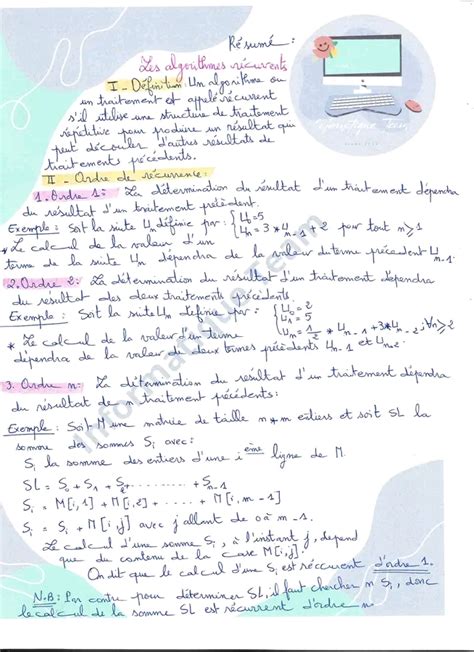 Résumé :
Les algorithmes récurrents
I - Définition : Un algorithme ou
un traitement est appelé récurrent
s'il utilise une structure de traitement
répétitive pour produire un résultat qui
peut découler d'autres résultats de
traitements précédents.
II - Ordre de récurrence :
1. Ordre 1 : La détermination du résultat d'un traitement dépendra
du résultat d'un traitement précédent.
Exemple : Soit la suite Un définie par : { U0 = 5
Un = 3 * Un-1 + 2 pour tout n ≥ 1
* Le calcul de la valeur d'un
terme de la suite Un dépendra de la valeur du terme précédent Un-1.
2. Ordre 2 : La détermination du résultat d'un traitement dépendra
du résultat des deux traitements précédents.
Exemple : Soit la suite Un définie par : { U0 = 2
U1 = 5
Un = 1/2 * Un-1 + 3 * Un-2, ∀n ≥ 2
* Le calcul de la valeur d'un terme
dépendra de la valeur de deux termes précédents Un-1 et Un-2.
3. Ordre n : La détermination du résultat d'un traitement dépendra
du résultat de n traitements précédents :
Exemple : Soit M une matrice de taille n * m entiers et soit SL la
somme des sommes Si avec :
Si la somme des entiers d'une i ème ligne de M.
SL = S0 + S1 + ........ + Sn-1
Si = M[i,1] + M[i,2] + ..... + M[i,m-1]
Si = Si + M[i,j] avec j allant de 0 à m-1.
Le calcul d'une somme Si, à l'instant j, dépend
que du contenu de la case M[i,j]
On dit que le calcul d'une Si est récurent d'ordre 1.
N.B : Par contre pour déterminer SL, il faut chercher n Si, donc
le calcul de la somme SL est récurrent d'ordre n.
Informatique Team